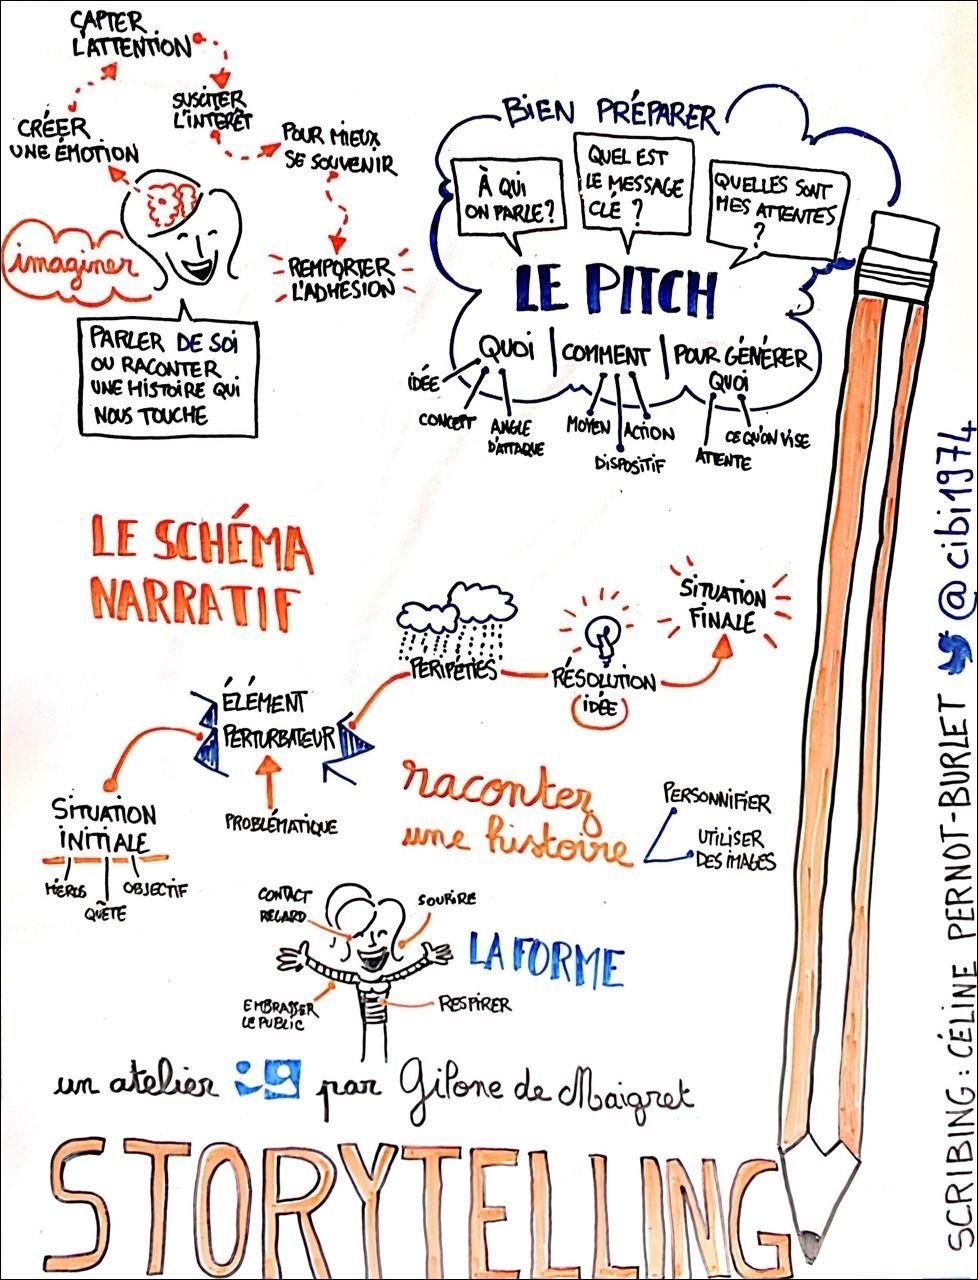 CAPTER
L'ATTENTION
SUSCITER
L'INTERÊT
CRÉER
UNE ÉMOTION
POUR MIEUX
SE SOUVENIR
imaginer
REMPORTER
L'ADHÉSION
PARLER DE SOI
OU RACONTER
UNE HISTOIRE QUI
NOUS TOUCHE
BIEN PRÉPARER
À QUI
ON PARLE?
QUEL EST
LE MESSAGE
CLÉ ?
QUELLES SONT
MES ATTENTES
?
LE PITCH
QUOI | COMMENT | POUR GÉNÉRER
QUOI
IDÉE
CONCEPT
ANGLE
D'ATTAQUE
MOYEN
ACTION
DISPOSITIF
CE QU'ON VISE
ATTENTE
LE SCHÉMA
NARRATIF
SITUATION
FINALE
PERIPÉTIES
RÉSOLUTION
IDÉE
ÉLÉMENT
PERTURBATEUR
PROBLÉMATIQUE
SITUATION
INITIALE
HÉROS
QUÊTE
OBJECTIF
racontez
une histoire
PERSONNIFIER
UTILISER
DES IMAGES
CONTACT
REGARD
SOURIRE
LA FORME
EMBRASSER
LE PUBLIC
RESPIRER
un atelier par Gilone de Maigret
STORYTELLING
SCRIBING : CÉLINE PERNOT-BURLET @cibi1974